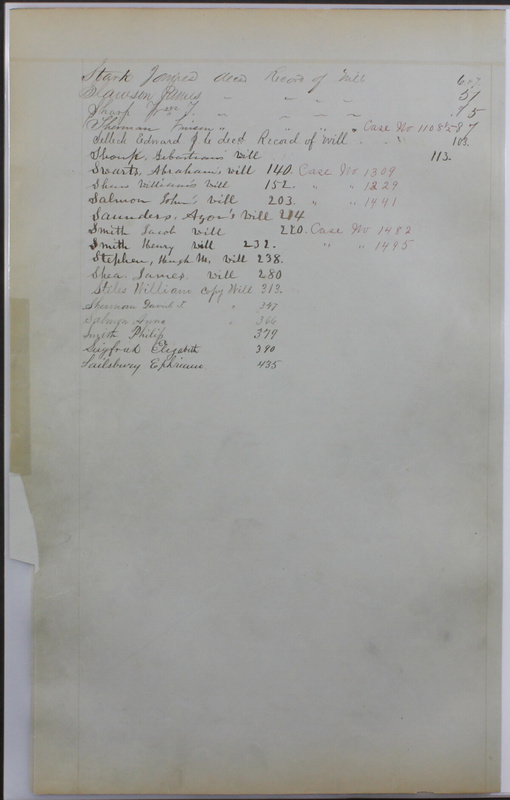 Stark decd Record of Will 6 & 7
Slawson 51
Sharp 75
Sherman " " " " Case No 1108 87
Sellick Edward G to decd Record of Will 103.
Shoup, Sebastian's Will 113.
Swarts, Abraham's will 140. Case No 1309
William's Will 152. " " 1229
Salmon John's Will 203. " " 1441
Saunders, Will 214
Smith Jacob will 220. Case No 1482
Smith Henry will 232. " " 1495
Stephen, Hugh M. will 238.
Shea James will 280
Stiles William copy Will 313.
Sherman David S " 347
" 366
Philip 379
Elizabeth 390
Sailsbury Ephraim 435